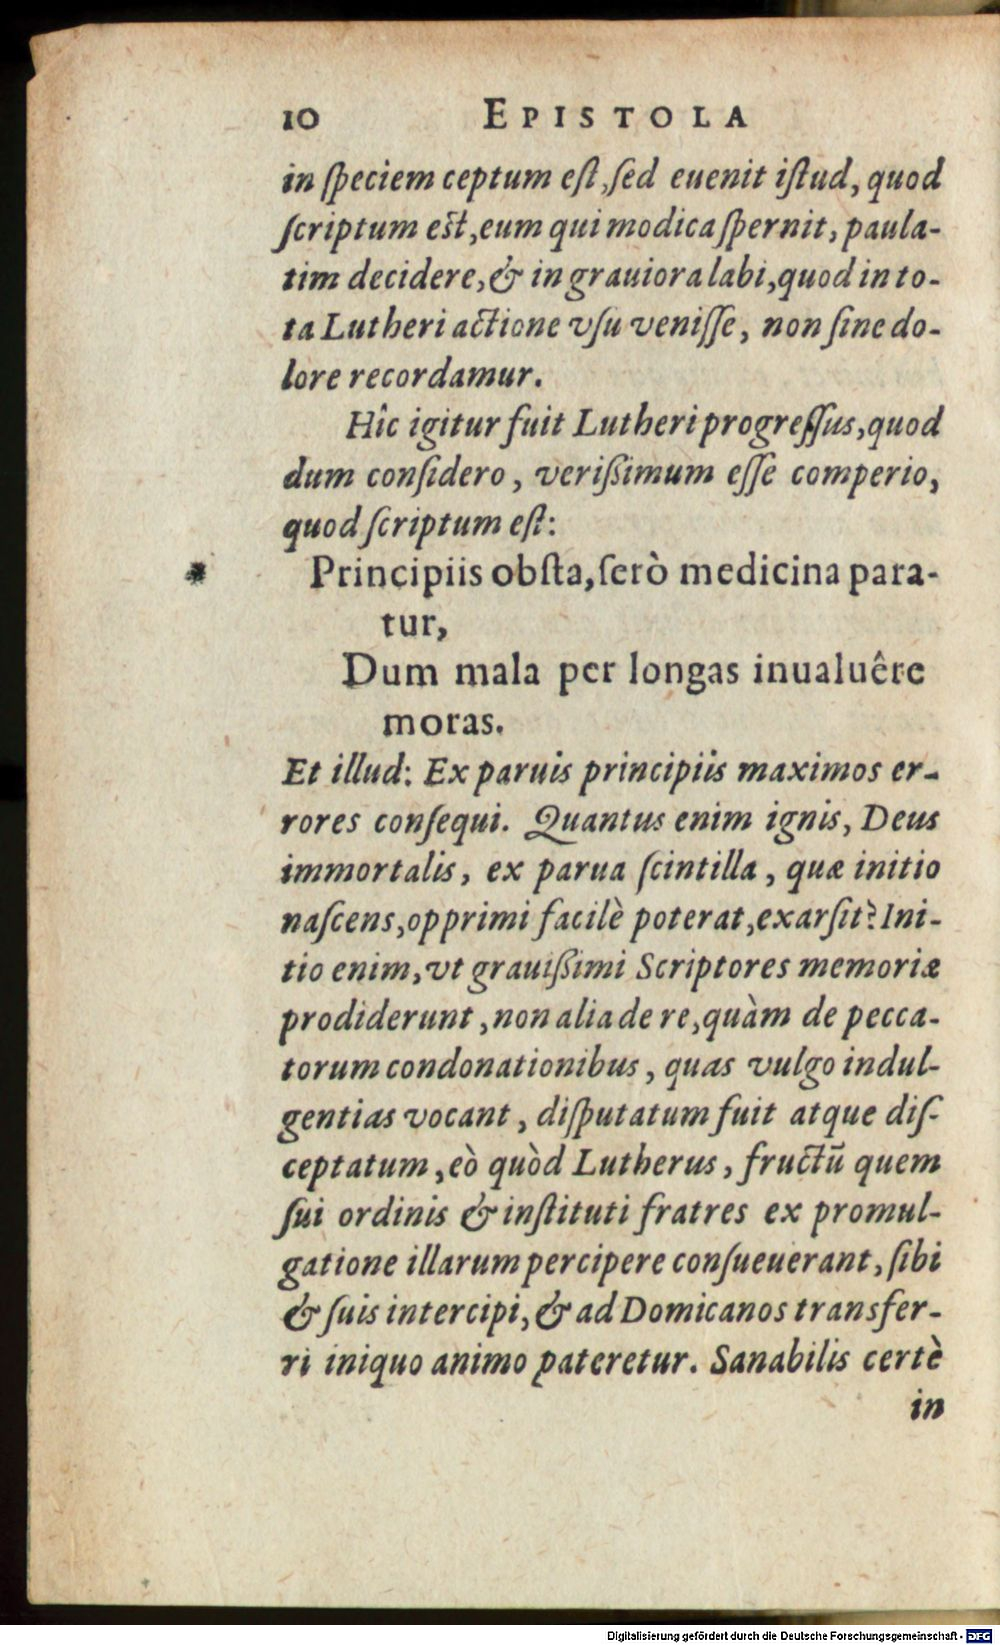 10 EPISTOLA
in ſpeciem ceptum eſt, ſed euenit iſtud, quod
ſcriptum eſt, eum qui modica ſpernit, paula-
tim decidere, & in grauiora labi, quod in to-
ta Lutheri actione vſu veniſſe, non ſine do-
lore recordamur.
Hîc igitur fuit Lutheri progreſſus, quod
dum conſidero, verißimum eſſe comperio,
quod ſcriptum eſt:
* Principiis obſta, ſerò medicina para-
tur,
Dum mala per longas inualuêre
moras.
Et illud: Ex paruis principiis maximos er-
rores conſequi. Quantus enim ignis, Deus
immortalis, ex parua ſcintilla, quæ initio
naſcens, opprimi facilè poterat, exarſit? Ini-
tio enim, vt grauißimi Scriptores memoriæ
prodiderunt, non alia de re, quàm de pecca-
torum condonationibus, quas vulgo indul-
gentias vocant, diſputatum fuit atque diſ-
ceptatum, eò quòd Lutherus, fructū quem
ſui ordinis & inſtituti fratres ex promul-
gatione illarum percipere conſueuerant, ſibi
& ſuis intercipi, & ad Domicanos transfer-
ri iniquo animo pateretur. Sanabilis certè
in
Digitalisierung gefördert durch die Deutsche Forschungsgemeinschaft - DFG